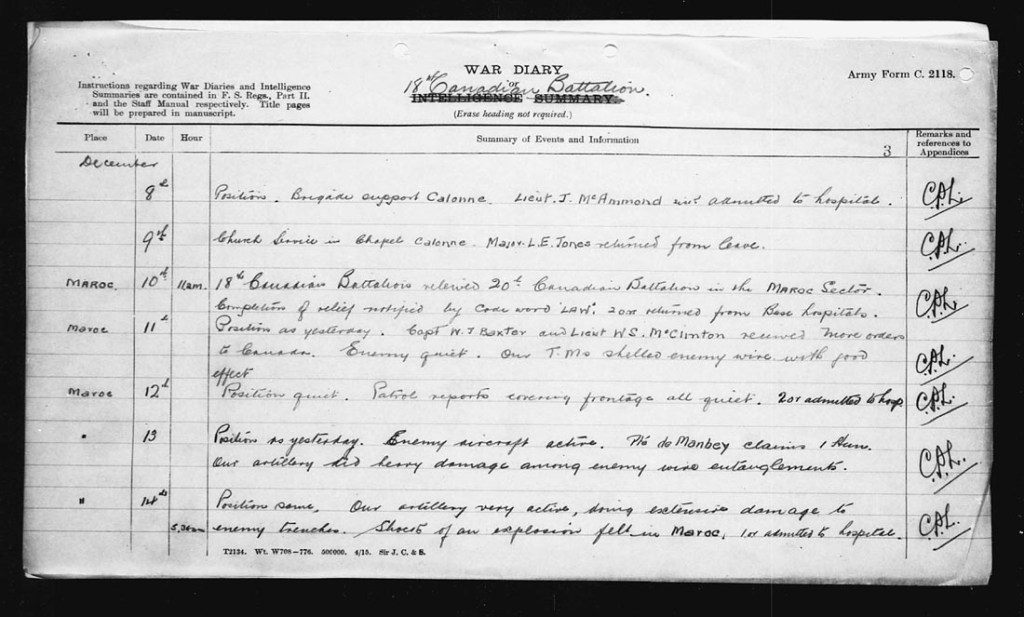 WAR DIARY
or
18th Canadian Battalion.
INTELLIGENCE SUMMARY.
(Erase heading not required.)
Army Form C. 2118.
Instructions regarding War Diaries and Intelligence
Summaries are contained in F. S. Regs., Part II.
and the Staff Manual respectively. Title pages
will be prepared in manuscript.
Place Date Hour Summary of Events and Information Remarks and references to Appendices
3
December
8th Position. Brigade support Calonne. Lieut. J. McAmmond admitted to hospital. C.P.L.
9th Church Service in Chapel Calonne. Major L.E. Jones returned from leave. C.P.L.
MAROC 10th 11am. 18th Canadian Battalion relieved 20th Canadian Battalion in the MAROC Sector.
Completion of relief notified by Code word "LAW". 2 or returned from Base hospitals. C.P.L.
Maroc 11th Position as yesterday. Capt W.J Baxter and Lieut W.S. McClinton received move orders
to Canada. Enemy quiet. Our T.Ms shelled enemy wire with good C.P.L.
effect
Maroc 12th Position quiet. Patrol reports covering frontage all quiet. 2 or admitted to hosp. C.P.L.
" 13 Position as yesterday. Enemy aircraft active. Pte de Manbey claims 1 Hun.
Our artillery did heavy damage among enemy wire entanglements. C.P.L.
" 14th Position same. Our artillery very active, doing extensive damage to
5.30am enemy trenches. Shock of an explosion felt in Maroc, 1 or admitted to hospital. C.P.L.
T2134. Wt. W708—776. 500000. 4/15. Sir J. C. & S.